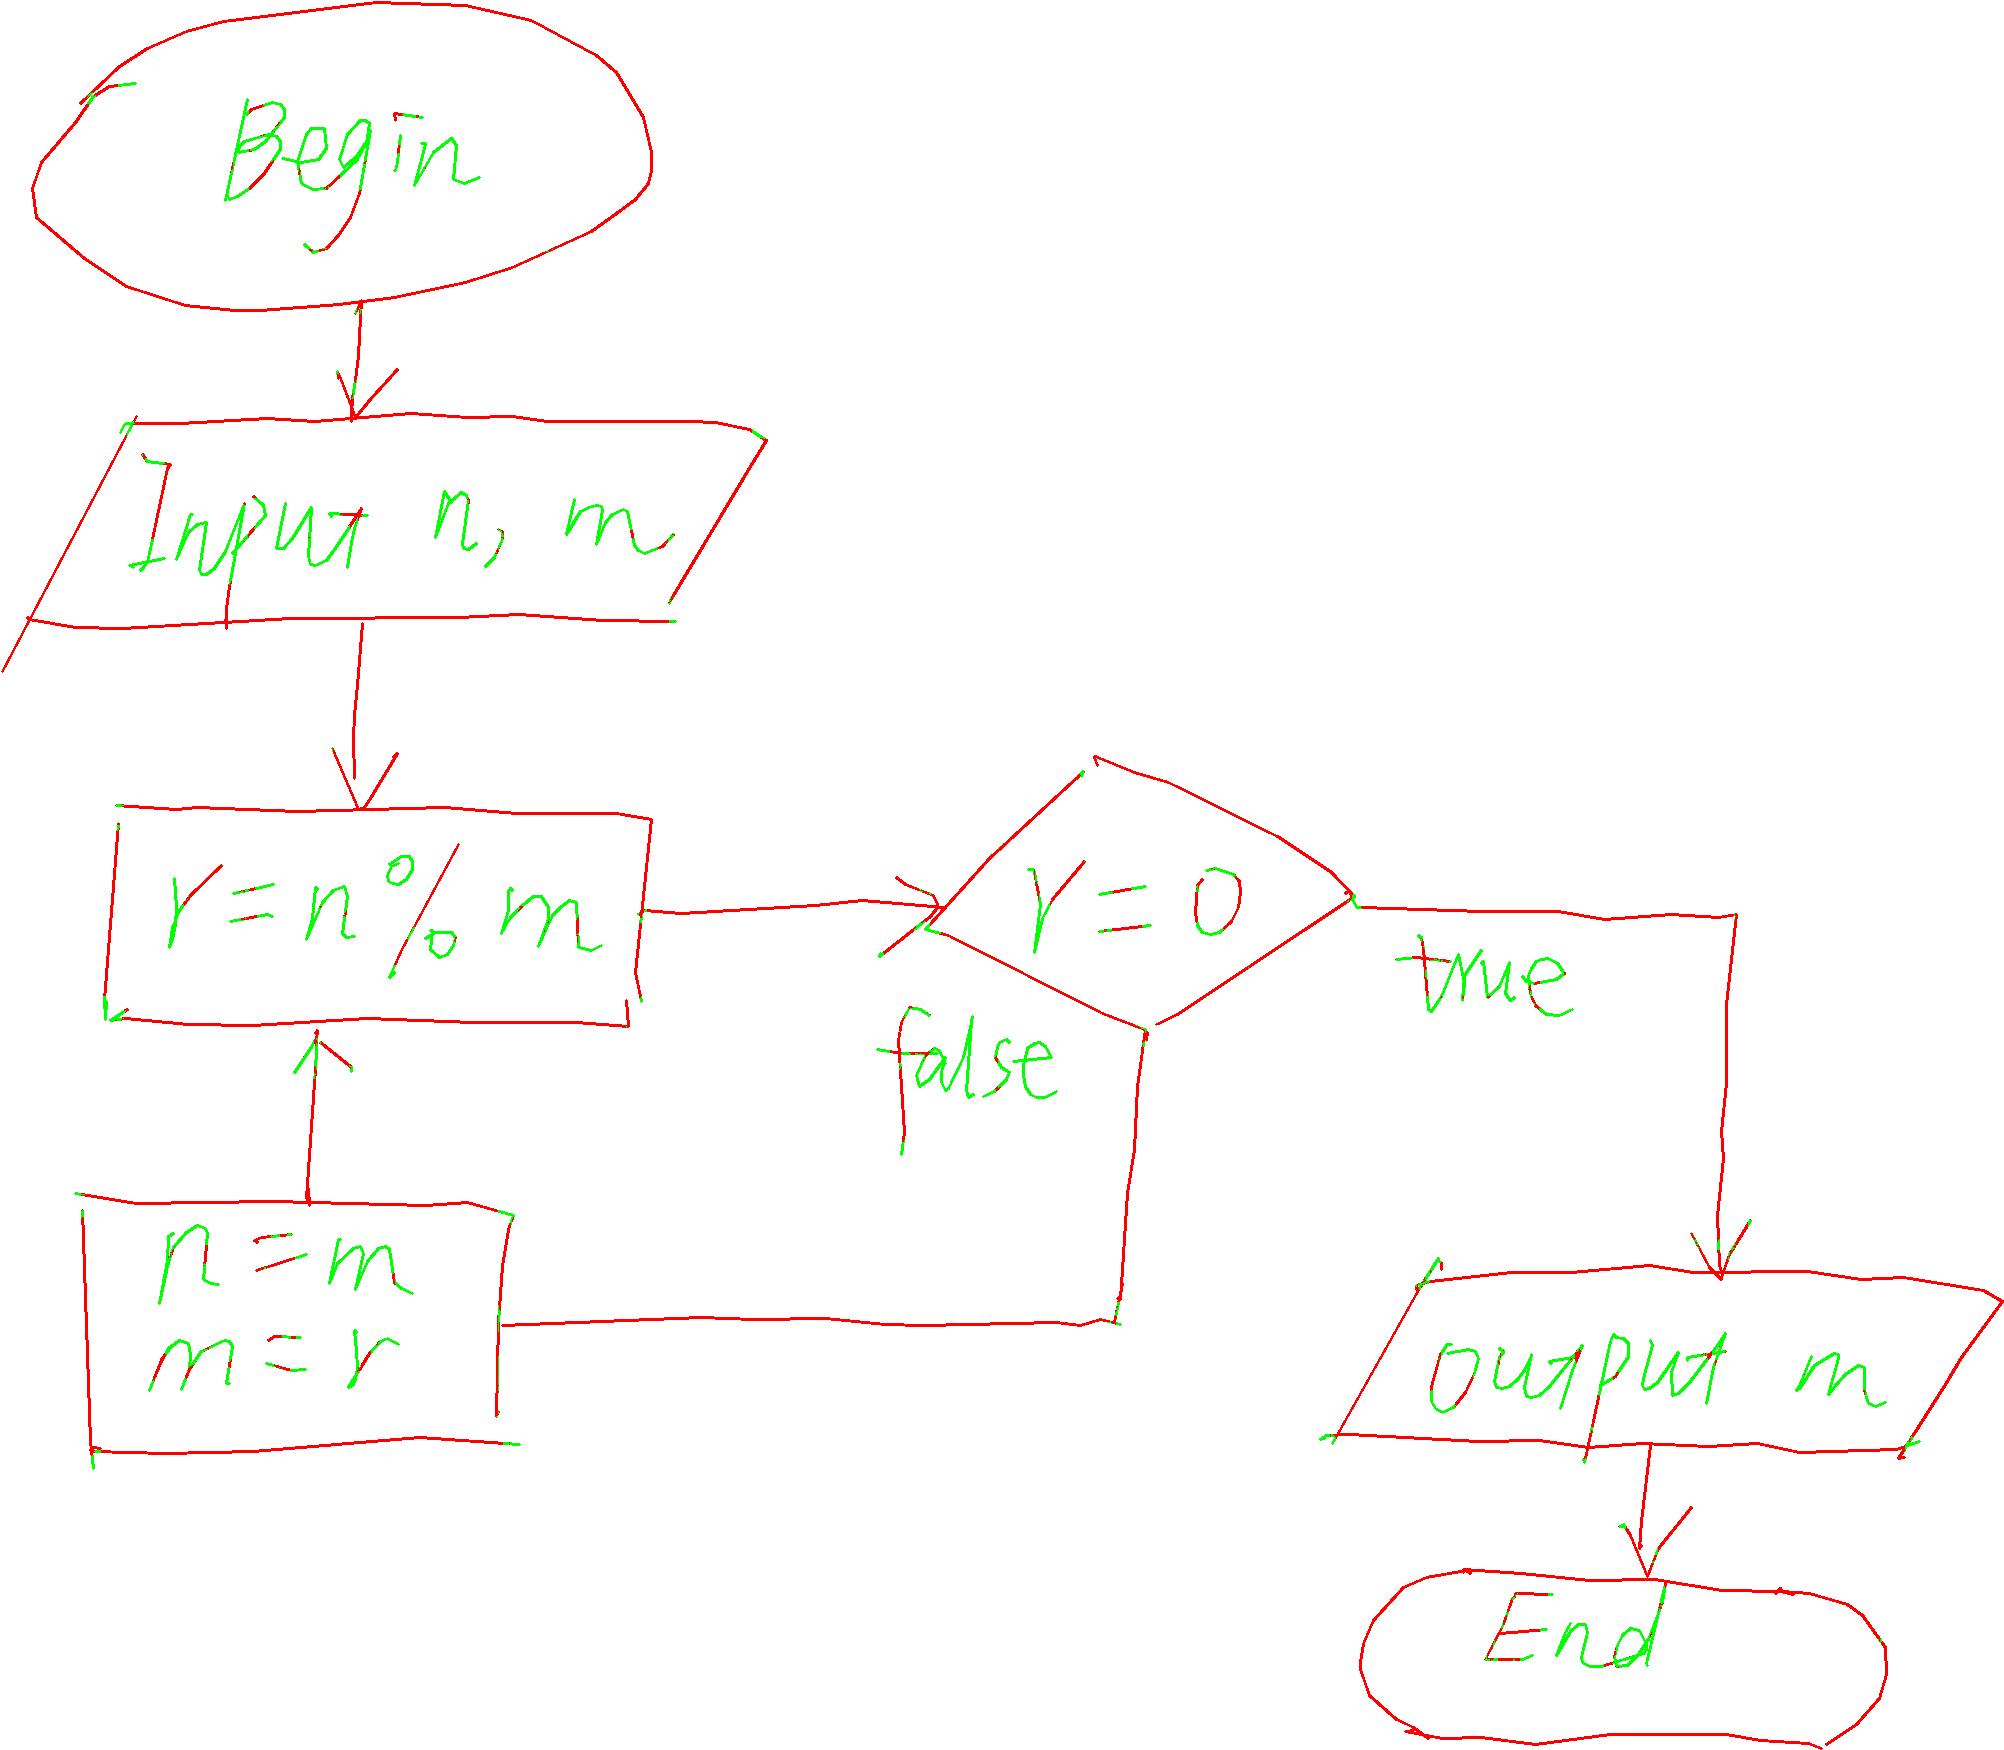 Begin
Input n, m
r = n % m
r = 0
true
false
n = m
m = r
output m
End